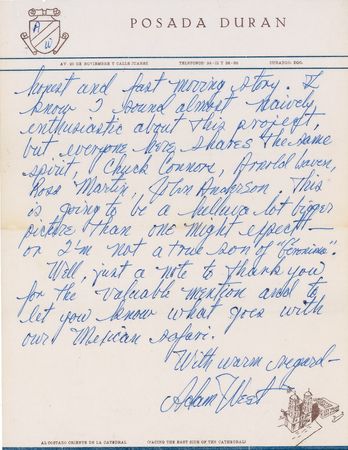 A
W
POSADA DURAN
AV. 20 DE NOVIEMBRE Y CALLE JUAREZ
TELEFONOS: 24-12 Y
DURANGO, DGO.
honest and fast moving story. I
know I sound almost naively
enthusiastic about this project,
but everyone here shares the same
spirit, Chuck Connors, Arnold Laven,
Ross Martin, John Anderson. This
is going to be a helluva lot bigger
picture than one might expect—
or I'm not a true son of "Geronimo".
Well, just a note to thank you
for the valuable mention and to
let you know what goes with
our Mexican safari.
With warm regard—
Adam West
AL COSTADO ORIENTE DE LA CATEDRAL
(FACING THE EAST SIDE OF THE CATHEDRAL)